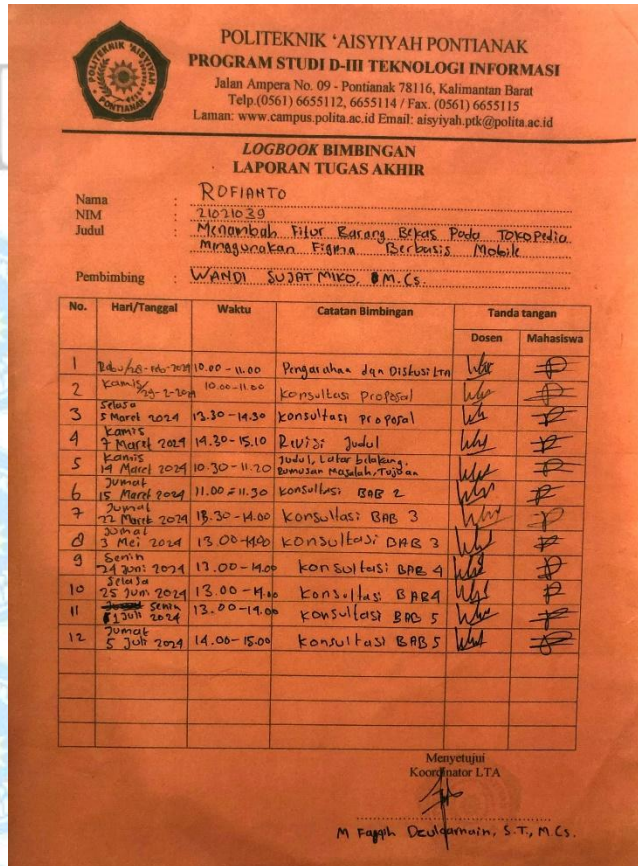 POLITEKNIK 'AISYIYAH PONTIANAK
PROGRAM STUDI D-III TEKNOLOGI INFORMASI
Jalan Ampera No. 09 - Pontianak 78116, Kalimantan Barat
Telp.(0561) 6655112, 6655114 / Fax. (0561) 6655115
Laman: www.campus.polita.ac.id Email: aisyiyah.ptk@polita.ac.id
POLITEKNIK 'AISYIYAH PONTIANAK
LOGBOOK BIMBINGAN
LAPORAN TUGAS AKHIR
Nama : ROFIANTO
NIM : 21021039
Judul : Menambah Fitur Barang Bekas Pada Tokopedia
Menggunakan Figma Berbasis Mobile
Pembimbing : WANDI SUJATMIKO, M.Cs.
No. Hari/Tanggal Waktu Catatan Bimbingan Tanda tangan
Dosen Mahasiswa
1 Rabu/28-feb-2024 10.00 - 11.00 Pengarahan dan Diskusi LTA
2 Kamis/29-2-2024 10.00-11.00 Konsultasi Proposal
3 Selasa 5 Maret 2024 13.30-14.30 Konsultasi proposal
4 Kamis 7 Maret 2024 14.30-15.10 Revisi Judul
5 Kamis 14 Maret 2024 10.30-11.20 Judul, Latar belakang, Rumusan Masalah, Tujuan
6 Jumat 15 Maret 2024 11.00-11.30 Konsultasi BAB 2
7 Jumat 22 Maret 2024 13.30-14.00 Konsultasi BAB 3
8 Jumat 3 Mei 2024 13.00-14.00 Konsultasi BAB 3
9 Senin 24 Juni 2024 13.00-14.00 Konsultasi BAB 4
10 Selasa 25 Juni 2024 13.00-14.00 Konsultasi BAB 4
11 Senin 1 Juli 2024 13.00-14.00 Konsultasi BAB 5
12 Jumat 5 Juli 2024 14.00-15.00 Konsultasi BAB 5
Menyetujui
Koordinator LTA
M Faqqih Dzulqarnain, S.T., M.Cs.